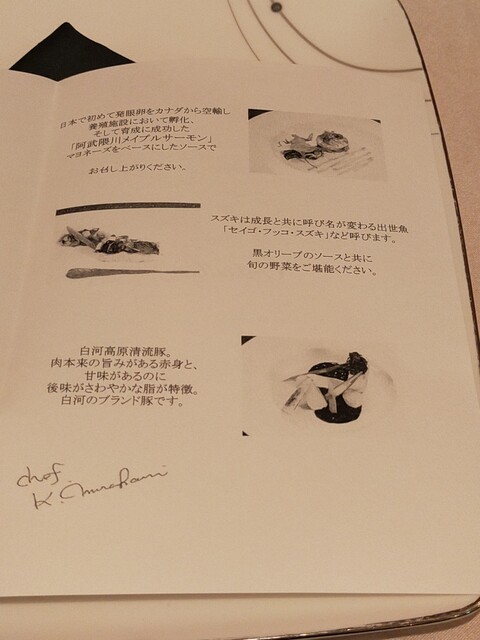 日本で初めて発眼卵をカナダから空輸し
養殖施設において孵化、
そして育成に成功した
「阿武隈川メイプルサーモン」
マヨネーズをベースにしたソースで
お召し上がりください。
スズキは成長と共に呼び名が変わる出世魚
「セイゴ・フッコ・スズキ」など呼びます。
黒オリーブのソースと共に
旬の野菜をご堪能ください。
白河高原清流豚。
肉本来の旨みがある赤身と、
甘味があるのに
後味がさわやかな脂が特徴。
白河のブランド豚です。
chef
K. Murakami